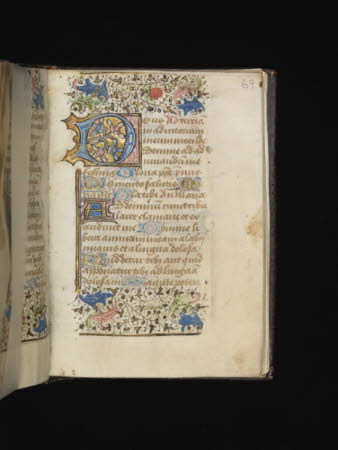 69
Deus Ad tercia
in adiutorium
meum intende
Domine ad ad
iuuandu me
festina Gloria
Memento salutis
Ad dominu cum tribu
larer clamaui et ex
audiuit me Domine li
bera animam meam a labijs
iniquis et a lingua dolosa
Quid detur tibi aut quid
apponatur tibi ad linguā
dolosam Sagitte poten